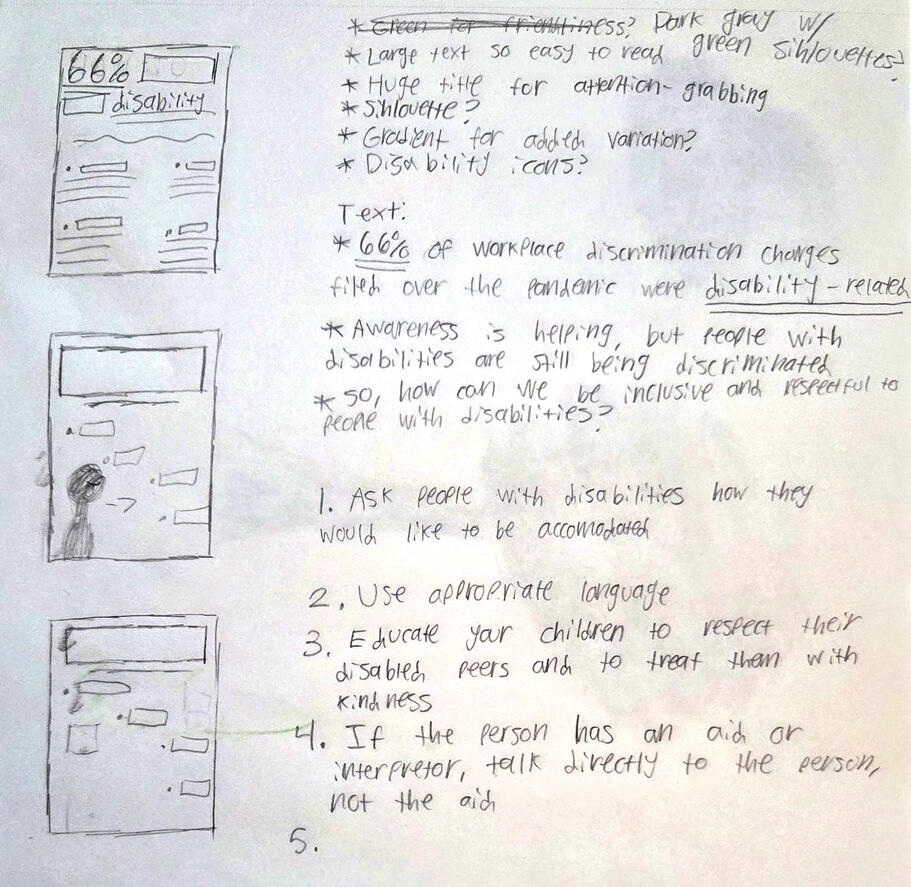 66%
disability
* Green for friendliness? Dark gray w/
green sihlouettes?
* Large text so easy to read
* Huge title for attention-grabbing
* Sihlouette?
* Gradient for added variation?
* Disability icons?
Text:
* 66% of workplace discrimination charges
filed over the pandemic were disability-related
* Awareness is helping, but people with
disabilities are still being discriminated
* So, how can we be inclusive and respectful to
people with disabilities?
1. Ask people with disabilities how they
would like to be accomodated
2. Use appropriate language
3. Educate your children to respect their
disabled peers and to treat them with
kindness
4. If the person has an aid or
interpretor, talk directly to the person,
not the aid
5.